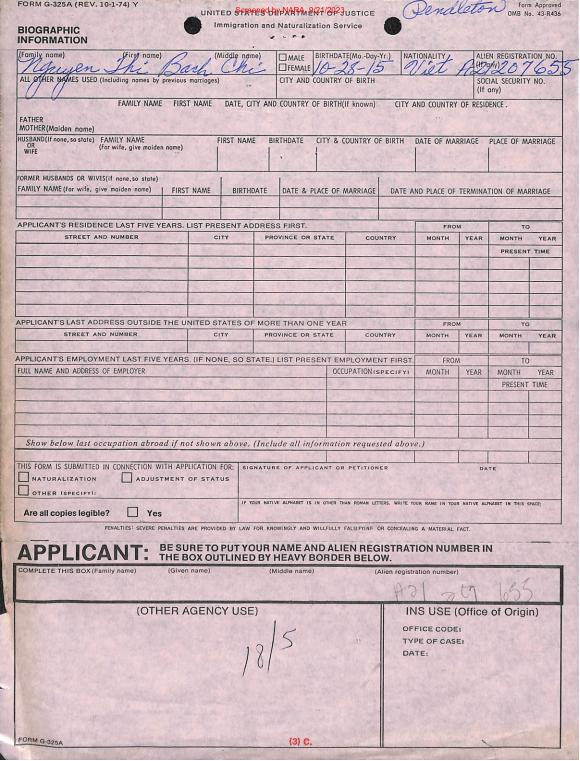 FORM G-325A (REV. 10-1-74) Y
UNITED STATES DEPARTMENT OF JUSTICE
Screened by NARA, 9/21/2023
Pendleton
Form Approved
OMB No. 43-R436
Immigration and Naturalization Service
BIOGRAPHIC
INFORMATION
(Family name) (First name) (Middle name) MALE BIRTHDATE(Mo.-Day-Yr.) NATIONALITY ALIEN REGISTRATION NO.
Nguyen Thi Bach Chi FEMALE 10-28-15 Viet A21207655
(If any)
ALL OTHER NAMES USED (Including names by previous marriages) CITY AND COUNTRY OF BIRTH SOCIAL SECURITY NO.
(If any)
FAMILY NAME FIRST NAME DATE, CITY AND COUNTRY OF BIRTH(If known) CITY AND COUNTRY OF RESIDENCE.
FATHER
MOTHER(Maiden name)
HUSBAND(If none, so state) FAMILY NAME FIRST NAME BIRTHDATE CITY & COUNTRY OF BIRTH DATE OF MARRIAGE PLACE OF MARRIAGE
OR (For wife, give maiden name)
WIFE
FORMER HUSBANDS OR WIVES(if none, so state)
FAMILY NAME (For wife, give maiden name) FIRST NAME BIRTHDATE DATE & PLACE OF MARRIAGE DATE AND PLACE OF TERMINATION OF MARRIAGE
APPLICANT'S RESIDENCE LAST FIVE YEARS. LIST PRESENT ADDRESS FIRST. FROM TO
STREET AND NUMBER CITY PROVINCE OR STATE COUNTRY MONTH YEAR MONTH YEAR
PRESENT TIME
APPLICANT'S LAST ADDRESS OUTSIDE THE UNITED STATES OF MORE THAN ONE YEAR FROM TO
STREET AND NUMBER CITY PROVINCE OR STATE COUNTRY MONTH YEAR MONTH YEAR
APPLICANT'S EMPLOYMENT LAST FIVE YEARS. (IF NONE, SO STATE.) LIST PRESENT EMPLOYMENT FIRST FROM TO
FULL NAME AND ADDRESS OF EMPLOYER OCCUPATION(SPECIFY) MONTH YEAR MONTH YEAR
PRESENT TIME
Show below last occupation abroad if not shown above. (Include all information requested above.)
THIS FORM IS SUBMITTED IN CONNECTION WITH APPLICATION FOR: SIGNATURE OF APPLICANT OR PETITIONER DATE
NATURALIZATION ADJUSTMENT OF STATUS
OTHER (SPECIFY):
IF YOUR NATIVE ALPHABET IS IN OTHER THAN ROMAN LETTERS, WRITE YOUR NAME IN YOUR NATIVE ALPHABET IN THIS SPACE:
Are all copies legible? Yes
PENALTIES: SEVERE PENALTIES ARE PROVIDED BY LAW FOR KNOWINGLY AND WILLFULLY FALSIFYING OR CONCEALING A MATERIAL FACT.
APPLICANT: BE SURE TO PUT YOUR NAME AND ALIEN REGISTRATION NUMBER IN
THE BOX OUTLINED BY HEAVY BORDER BELOW.
COMPLETE THIS BOX (Family name) (Given name) (Middle name) (Alien registration number)
A21 207 655
(OTHER AGENCY USE) INS USE (Office of Origin)
18/5
OFFICE CODE:
TYPE OF CASE:
DATE:
FORM G-325A
(3) C.